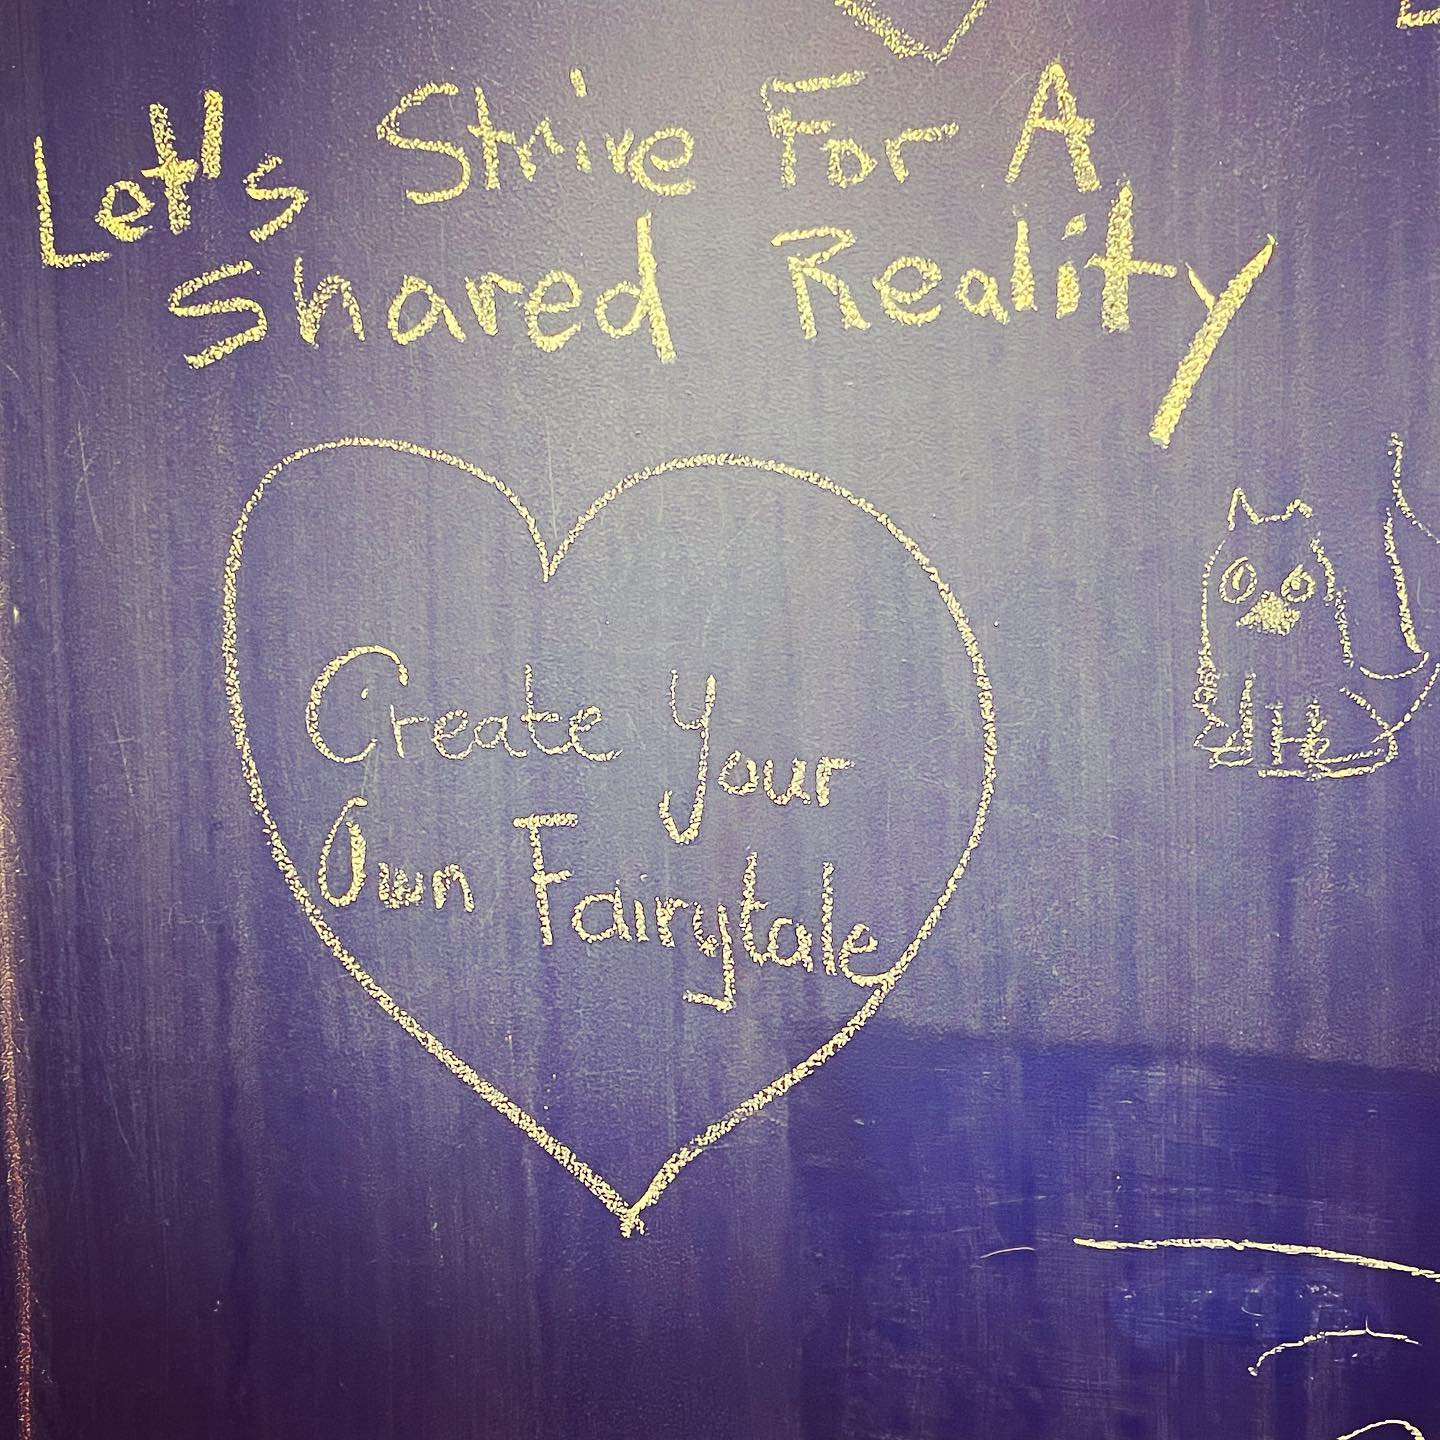 Let's Strive For A
Shared Reality
Create Your
Own Fairytale